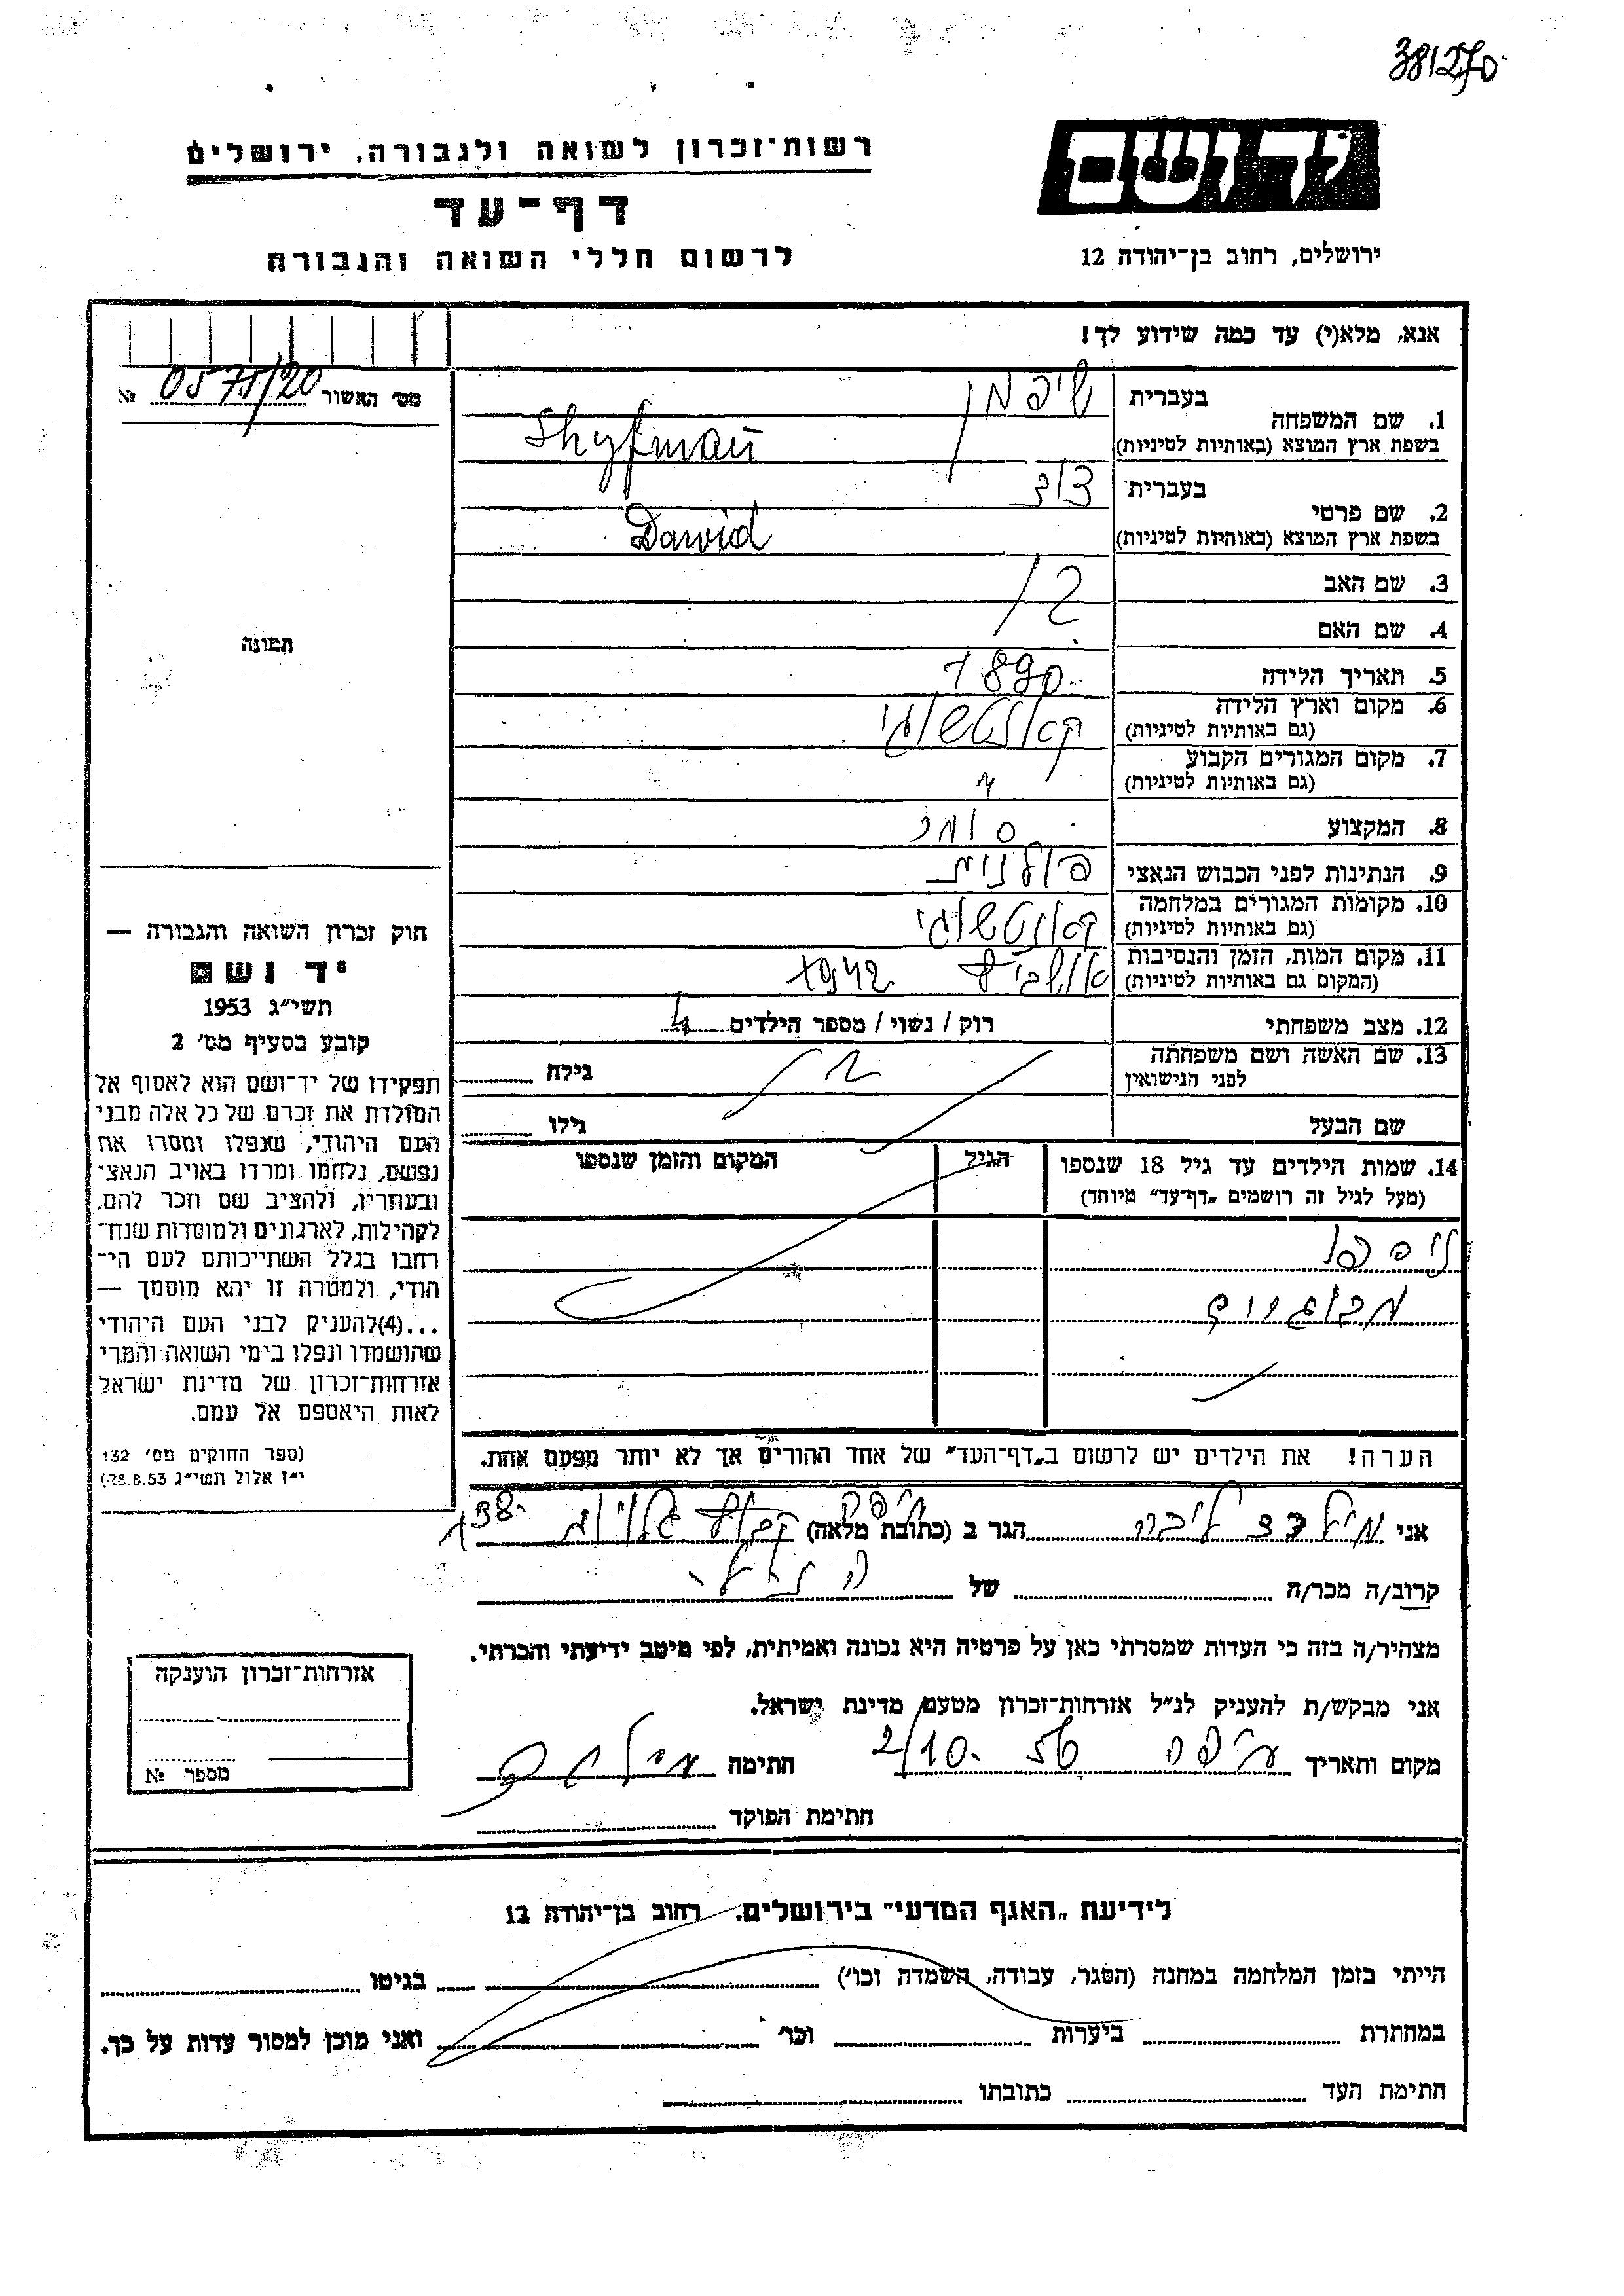 381270
רשות־זכרון לשואה ולגבורה, ירושלים
יד ושם
דף־עד
לרשום חללי השואה והגבורה
ירושלים, רחוב בן־יהודה 12
אנא, מלא(י) עד כמה שידוע לך!
מס׳ האשור 0575/20 №
1. שם המשפחה
בעברית שיפמן
בשפת ארץ המוצא (באותיות לטיניות) Shyfman
2. שם פרטי
בעברית דוד
בשפת ארץ המוצא (באותיות לטיניות) Dawid
3. שם האב
4. שם האם
5. תאריך הלידה 1890
6. מקום וארץ הלידה
(גם באותיות לטיניות)
7. מקום המגורים הקבוע
(גם באותיות לטיניות) "
8. המקצוע סוחר
9. הנתינות לפני הכבוש הנאצי פולנית
10. מקומות המגורים במלחמה
(גם באותיות לטיניות)
11. מקום המות, הזמן והנסיבות 1942
(המקום גם באותיות לטיניות)
12. מצב משפחתי רוק / נשוי / מספר הילדים 4
13. שם האשה ושם משפחתה
לפני הנישואין
גילה
שם הבעל
גילו
14. שמות הילדים עד גיל 18 שנספו
(מעל לגיל זה רושמים „דף־עד״ מיוחד)
הגיל
המקום והזמן שנספו
מבוגרים
הערה! את הילדים יש לרשום ב„דף־העד״ של אחד ההורים אך לא יותר מפעם אחת.
תמונה
חוק זכרון השואה והגבורה —
יד ושם
תשי״ג 1953
קובע בסעיף מס׳ 2
תפקידו של יד־ושם הוא לאסוף אל
המולדת את זכרם של כל אלה מבני
העם היהודי, שנפלו ומסרו את
נפשם, נלחמו ומרדו באויב הנאצי
ובעוזריו, ולהציב שם וזכר להם,
לקהילות, לארגונים ולמוסדות שנח־
רבו בגלל השתייכותם לעם הי־
הודי, ולמטרה זו יהא מוסמך —
...(4)להעניק לבני העם היהודי
שהושמדו ונפלו בימי השואה והמרי
אזרחות־זכרון של מדינת ישראל
לאות היאספם אל עמם.
(ספר החוקים מס׳ 132
י״ז אלול תשי״ג 28.8.53)
אני הגר ב (כתובת מלאה) חיפה קבוץ גלויות 138
קרוב/ה מכר/ה של
מצהיר/ה בזה כי העדות שמסרתי כאן על פרטיה היא נכונה ואמיתית, לפי מיטב ידיעתי והכרתי.
אני מבקש/ת להעניק לנ״ל אזרחות־זכרון מטעם מדינת ישראל.
מקום ותאריך חיפה 2/10. 56 חתימה
חתימת הפוקד
אזרחות־זכרון הוענקה
מספר №
לידיעת „האגף המדעי״ בירושלים. רחוב בן־יהודה 12
הייתי בזמן המלחמה במחנה (הסגר, עבודה, השמדה וכו׳) בגיטו
במחתרת ביערות וכו׳ ואני מוכן למסור עדות על כך.
חתימת העד כתובתו